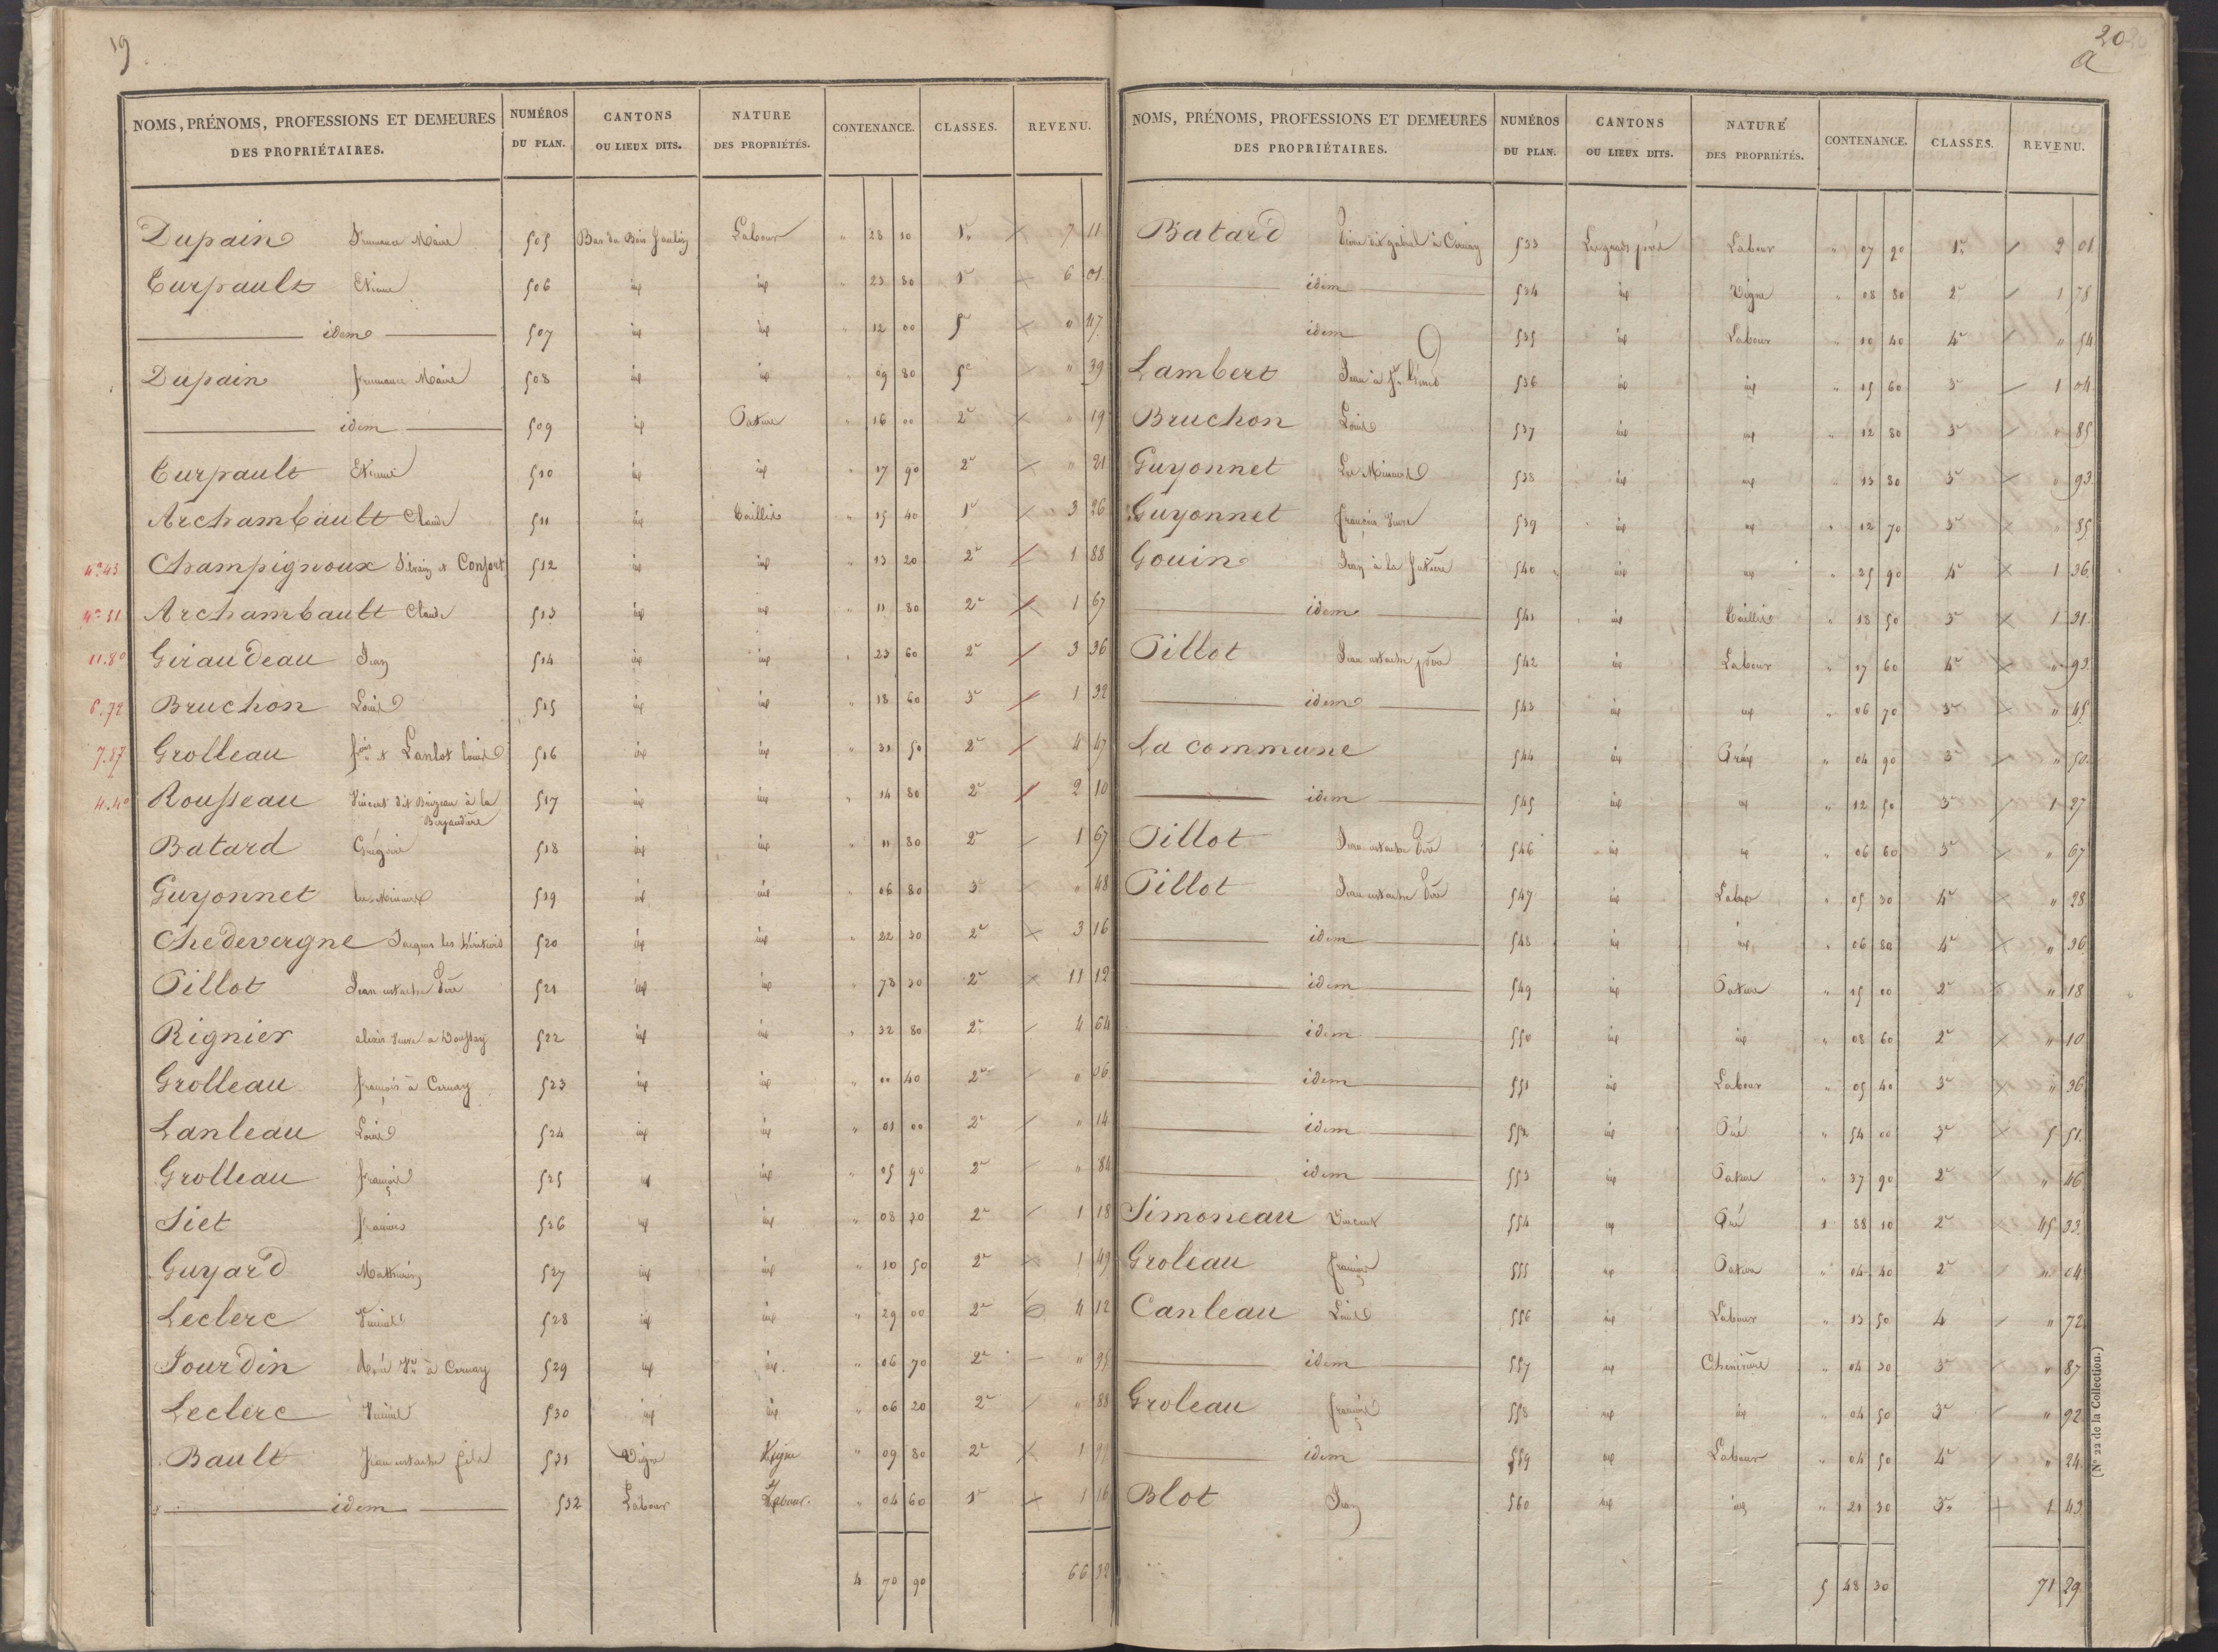 19.
NOMS, PRÉNOMS, PROFESSIONS ET DEMEURES DES PROPRIÉTAIRES. NUMÉROS DU PLAN. CANTONS OU LIEUX DITS. NATURE DES PROPRIÉTÉS. CONTENANCE. CLASSES. REVENU.
Dupain Maire 505 Bas du Bois Labour " 28 10 1e 7 11
Turpault Etienne 506 id 23 80 1e 6 01
idem 507 id id " 12 00 5e " 47
Dupain Maire 508 id id 09 80 5e " 39
idem 509 id Pature " 16 00 2e " 19
Turpault Etienne 510 id id " 17 90 2e " 21
Archambault Claude 511 id Taillis " 15 40 1e 3 26
4a.43 Champignoux et Consort 512 id id " 13 20 2e 1 88
Archambault Claude 513 id id " 11 80 2e 1 67
11.80 Giraudeau Jean 514 id id " 23 60 2e 3 36
6.72 Bruchon Louis 515 id id " 18 60 3e 1 32
Grolleau fois & Lanlot Louis 516 id id " 31 50 2e 4 47
4.40 Rousseau Vincent dit à la 517 id id " 14 80 2e 2 10
Batard Grégoire 518 id id " 11 80 2e 1 67
Guyonnet les Mineurs 519 id id " 06 80 3e " 48
Chedevergne Jacques les héritiers 520 id id " 22 30 2e 3 16
Pillot Jean eustache 521 id id " 78 30 2e 11 12
Rignier alexis Veuve a Doussay 522 id id " 32 80 2e 4 64
Grolleau françois à Cernay 523 id id " 00 40 2e " 06
Lanleau Louis 524 id id " 01 00 2e " 14
Grolleau françois 525 id id " 05 90 2e " 84
Siet 526 id id " 08 30 2e 1 18
Guyard Mathurin 527 id id " 10 50 2e 1 49
Leclerc Vincent 528 id id " 29 00 2e 4 12
Jourdin René Ve à Cernay 529 id id " 06 70 2e " 95
Leclerc Vincent 530 id id " 06 20 2e " 88
Bault Jean eustache fils 531 Vigne Vigne " 09 80 2e 1
idem 532 Labour Labour " 04 60 1e 1 16
4 70 90 66 32
20
a
NOMS, PRÉNOMS, PROFESSIONS ET DEMEURES DES PROPRIÉTAIRES. NUMÉROS DU PLAN. CANTONS OU LIEUX DITS. NATURE DES PROPRIÉTÉS. CONTENANCE. CLASSES. REVENU.
Batard à Cernay 533 Les grands prés Labour " 07 90 1e 2 01
idem 534 id Vigne " 08 80 2e 1 75
idem 535 id Labour " 10 40 4e " 54
Lambert Jean à 536 id id " 15 60 3e 1 04
Bruchon Louis 537 id id " 12 80 3e " 85
Guyonnet Les Mineurs 538 id id " 13 80 3e " 93
Guyonnet françois Veuve 539 id id " 12 70 3e " 85
Gouin Jean à la 540 id id " 25 90 4e 1 36
idem 541 id Taillis " 18 50 3e 1 31
Pillot Jean eustache père 542 id Labour " 17 60 4e " 93
idem 543 id id " 06 70 3e " 45
La commune 544 id Prés " 04 90 3e " 50
idem 545 id id " 12 50 3e 1 27
Pillot Jean eustache 546 id id " 06 60 3e " 67
Pillot Jean eustache 547 id Labour " 05 30 4e " 28
idem 548 id id " 06 80 4e " 36
idem 549 id Pature " 15 00 2e " 18
idem 550 id id " 08 60 2e " 10
idem 551 id Labour " 05 40 3e " 36
idem 552 id Pré " 54 00 3e 5 51
idem 553 id Pature " 37 90 2e " 46
Simoneau Vincent 554 id Pré 1 88 10 2e 45 33
Groleau françois 555 id Pature " 04 40 2e " 04
Canleau Louis 556 id Labour " 13 50 4 " 72
idem 557 id Chenevière " 04 30 3e " 87
Groleau françois 558 id id " 04 50 3e " 92
idem 559 id Labour " 04 50 4e " 24
Blot Jean 560 id id " 21 30 3e 1 43
5 48 30 71 29
(No 22 de la Collection.)